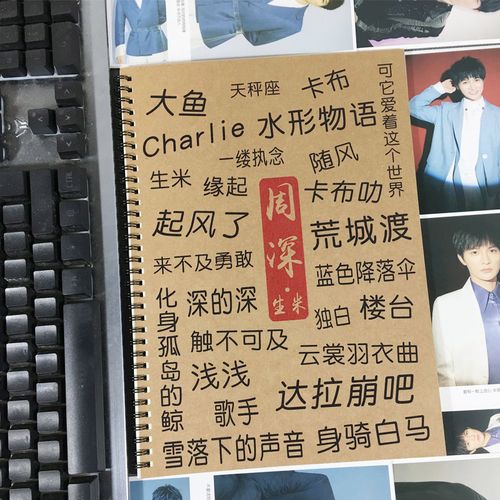 大鱼
天秤座
卡布
可它爱着这个世界
Charlie
水形物语
一缕执念
随风
生米
缘起
卡布叻
周深·生米
起风了
荒城渡
来不及勇敢
蓝色降落伞
化身孤岛的鲸
深的深
独白
楼台
触不可及
云裳羽衣曲
浅浅
达拉崩吧
歌手
雪落下的声音
身骑白马